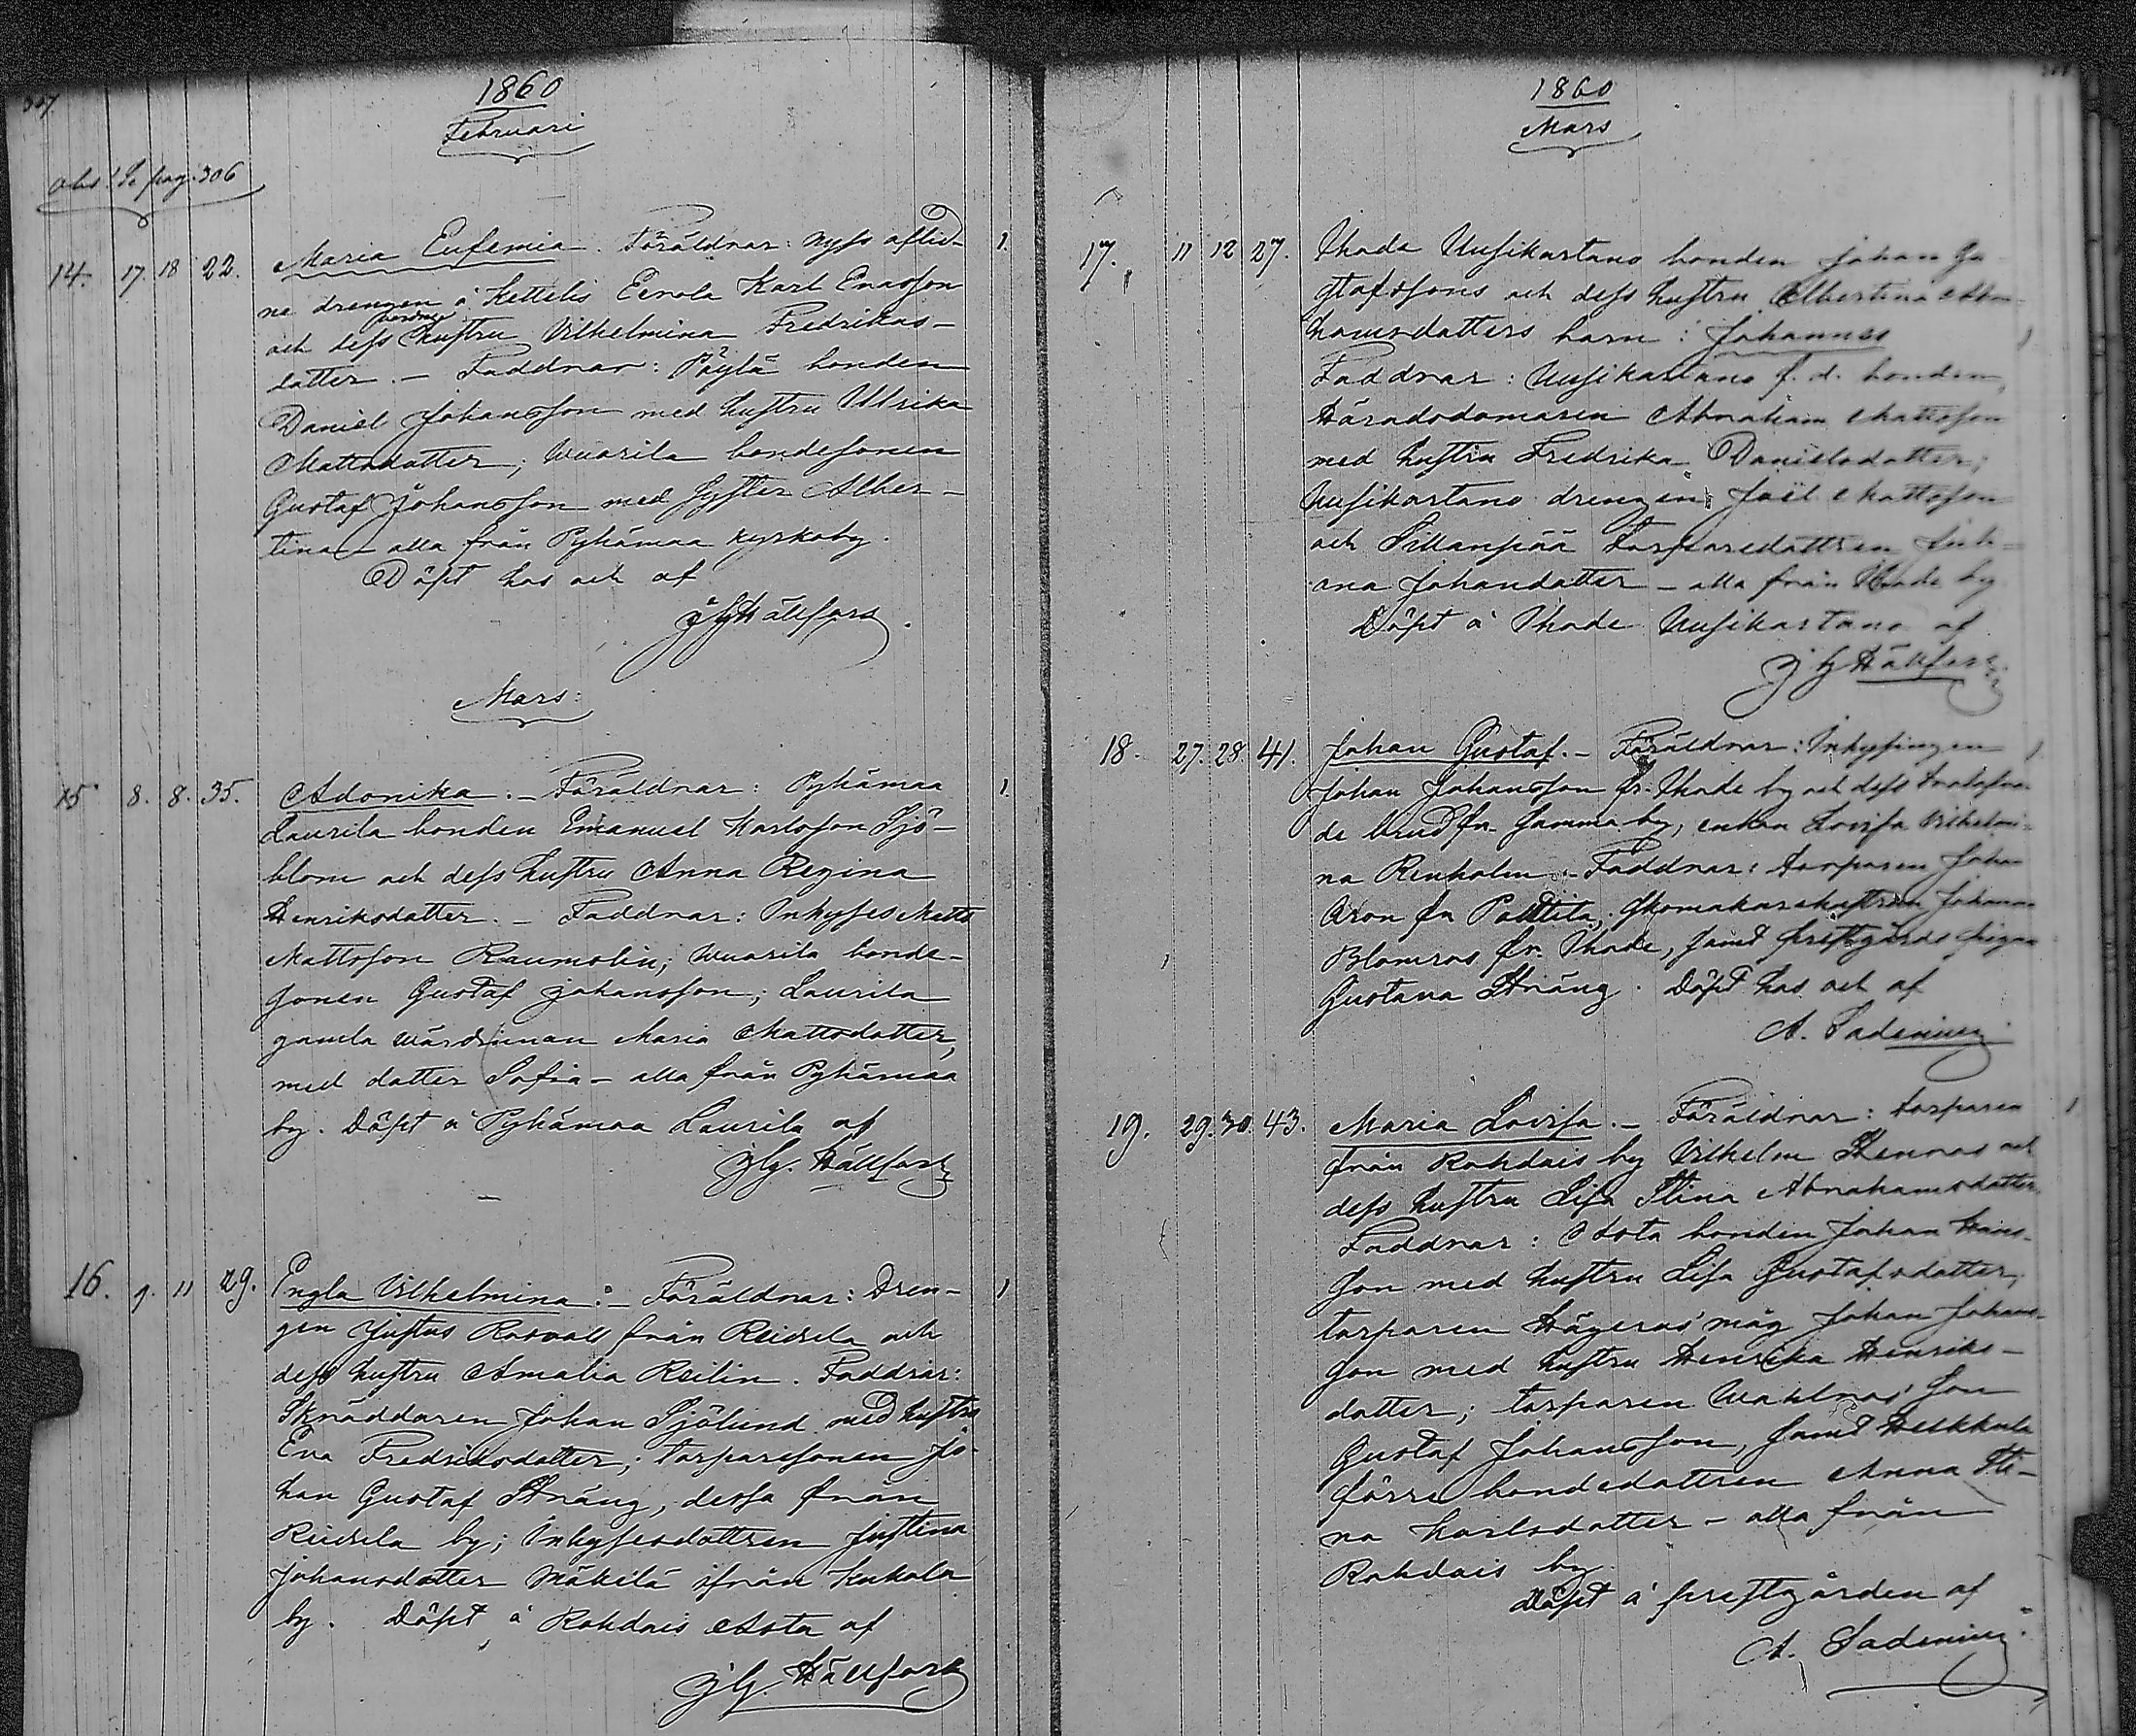 1860
Februari
obs! Se pag. 306
14. 17. 18 22. Maria Eufemia. Föräldrar: nyss aflid-
ne drengen å Kettelis Eerola Karl
och dess hustru Vilhelmina Fredriks-
datter. – Faddrar: Päylä bonden
Daniel Johansson med hustru Ulrika
Mattsdatter; Wuorila bondesonen
Gustaf Johansson med syster Alber-
tina – alla från Pyhämaa kyrkoby.
Döpt hos och af
J G Hällfors.
Mars:
15 8. 8. 35. Adonika. – Föräldrar: Pyhämaa
Laurila bonden Emanuel Karlsson Sjö-
blom och dess hustru Anna Regina
Henriksdatter. – Faddrar: Inhyses Matts
Mattsson Raumolin; Wuorila bonde-
sonen Gustaf Johansson; Laurila
gamla wärdinnan Maria Mattsdatter,
med datter Sofia – alla från Pyhämaa
by. Döpt å Pyhämaa Laurila af
J G. Hällfors
16. 9. 11 29. Engla Vilhelmina. – Föräldrar: Dren-
gen Justus Rosvall från Reidsela och
dess hustru Amalia Reilin. Faddrar:
Skräddaren Johan Sjölund med hustru
Eva Fredriksdatter; torparesonen Jo-
han Gustaf Sträng, dessa från
Reidsela by; Inhysesdottren Justina
Johansdatter Mäkilä ifrån Kukola
by. Döpt å Rohdais Asta af
J G. Hällfors
1860
Mars
17. 11 12 27. Ihode Uusikartano bonden Johan Gu-
stafssons och dess hustru Albertina Abra-
hamsdatters barn: Johannes
Faddrar: Uusikartano f. d. bonden,
Häradsdomaren Abraham Mattsson
med hustru Fredrika Danielsdatter;
Uusikartano drengen Joel Mattsson
och Sillanpää torparedattren Joh-
ana Johansdatter – alla från Ihode by
Döpt å Ihode Uusikartano af
J G Hällfors.
18. 27. 28. 41. Johan Gustaf. – Föräldrar: Inhysingen
Johan Johansson fr. Ihode by och dess trolofva-
de brud fr. Gamma by, enkan Lovisa Vilhelmi-
na Renholm. Faddrar: torparen Johan
Aron fr. Palttila; Skomakarehustrun Johanna
Blomros fr. Ihode, samt prestgårds pigan
Gustava Sträng. Döpt hos och af
A. Sadenius
19. 29. 30. 43. Maria Lovisa. – Föräldrar: torparen
från Rohdais by Vilhelm Stenros och
dess hustru Lisa Stina Abrahamsdatter.
Faddrar: Asta bonden Johan Hans-
son med hustru Lisa Gustafsdatter,
torparen Hägeros' måg Johan Johans-
son med hustru Henrika Henriks-
datter; torparen Wahlros' son
Gustaf Johansson, samt Heikkola
förre bondedattren Anna Sti-
na Karlsdatter – alla från
Rohdais by.
Döpt å prestgården af
A. Sadenius